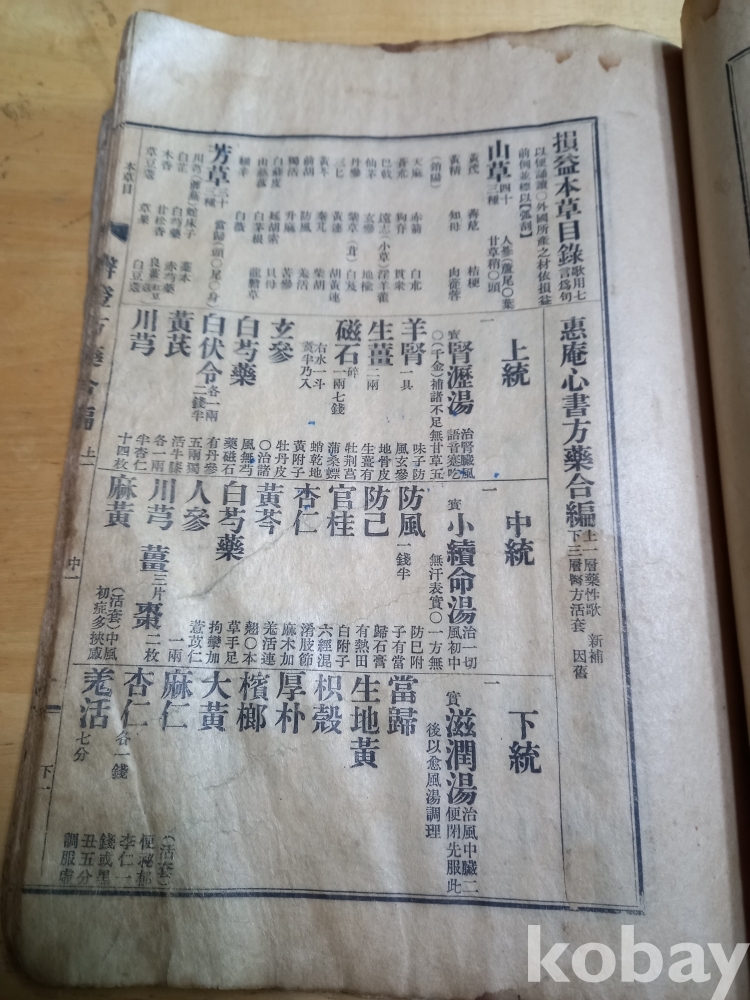 損益本草目錄
歌用七言爲句
以便誦讀〇外國所產之材依損益
前例並標以【弧刮】
山草四十三種
人參(蘆尾〇葉
甘草稍〇頭
黃芪
薺苨
桔梗
黃精
知母
肉蓯蓉
(鎖陽)
天麻
赤箭
白朮
蒼朮
狗脊
貫衆
巴戟
遠志(小草)淫羊藿
仙茅
玄參
地楡
丹參
紫草(茸)白芨
三七
黃連
胡黃連
黃芩
秦艽
柴胡
前胡
防風
羌活
獨活
升麻
苦參
白蘚皮
延胡索
貝母
山慈菰
白茅根
龍膽草
細辛
白薇
芳草三十三種
當歸(頭〇尾〇身)
川芎(蘼蕪)蛇床子
藁本
白芷
白芍藥
赤芍藥
木香
甘松香
良薑紅豆
草豆蔲
草果
白豆蔲
惠庵心書方藥合編
上一層藥性歌 新補
下三層醫方活套 因舊
上統
一
實
腎瀝湯
治腎臟風
語音蹇吃
〇(千金)補諸不足無甘草五
味子防
風玄參
地骨皮
生薑有
牡荊莒
蒲桑螵
蛸乾地
黃附子
牡丹皮
〇治諸
風無芍
藥磁石
有丹參
五兩獨
活牛膝
各一兩
半杏仁
十四枚
羊腎一具
生薑二兩
磁石碎一兩七錢
右水一斗
煮半乃入
玄參
白芍藥
白伏令各一兩二錢半
黃芪
川芎
中統
一
實
小續命湯
治一切
風初中
無汗表實〇一方無
防巳附
子有當
歸石膏
有熱田
白附子
六經混
淆肢節
麻木加
羗活連
翹〇本
草手足
拘攣加
薏苡仁
一兩
防風一錢半
防己
官桂
杏仁
黃芩
白芍藥
人參
川芎
薑三片棗二枚
麻黃
(活套)中風
初症多挾感
下統
一
實
滋潤湯
治風中臟二
便閉先服此
後以愈風湯調理
當歸
生地黃
枳殼
厚朴
檳榔
大黃
麻仁
杏仁各一錢
羗活七分
(活套)
便祕郁
李仁一
錢或黑
丑五分
調服虛
本草目
辨證方藥合編
上一
中一
下一
kobay